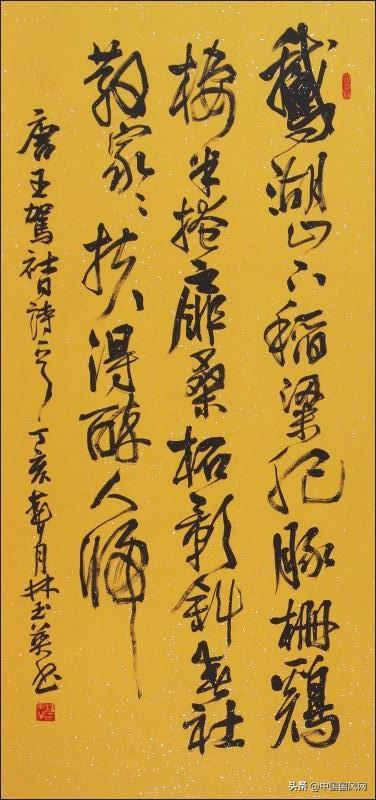 鵝湖山下稻粱肥豚柵鷄
棲半掩扉桑柘影斜春社
散家〻扶得醉人歸
唐王駕社日詩 丁亥 月林玉英書
头条 @中国国风网